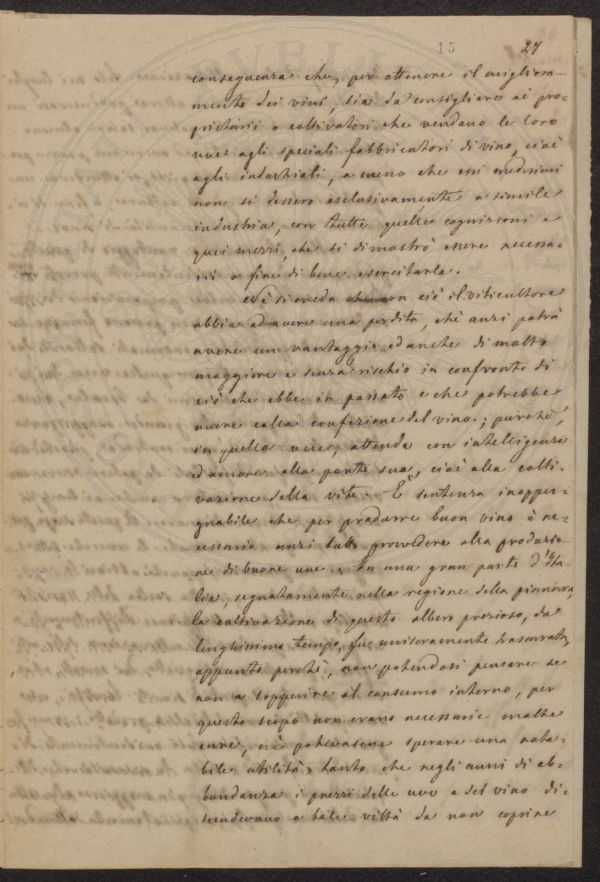 15 27
conseguenza che, per ottenere il migliora-
mento dei vini, sia da consigliare ai pro-
prietarii o coltivatori che vendano le loro
uve agli speciali fabbricatori di vino, cioè
agli industriali, a meno che essi medesimi
non si dessero esclusivamente a simile
industria, con tutte quelle cognizioni e
quei mezzi, che si dimostrò essere necessa-
rii a fine di bene esercitarla.
Nè si creda con ciò il viticultore
abbia ad avere una perdita, chè anzi potrà
avere un vantaggio ed anche di molto
maggiore e senza rischio in confronto di
ciò che ebbe in passato e che potrebbe
avere colla confezione del vino; purchè,
in quella vece, attenda con intelligenza
ed amore alla parte sua, cioè alla colti-
vazione della vite. È sentenza inoppu-
gnabile che per produrre buon vino è ne-
cessario anzi tutto provvedere alla produzio-
ne di buone uve. In una gran parte d'Ita-
lia, segnatamente nella regione della pianura,
la coltivazione di questo albero prezioso, da
lunghissimo tempo, fu miseramente trascurata,
appunto perchè, non potendosi pensare se
non a sopperire al consumo interno, per
questo scopo non erano necessarie molte
cure, nè potevasene sperare una nota-
bile utilità, tanto che negli anni di ab-
bondanza i prezzi delle uve e del vino di-
scendevano a tale viltà da non coprire